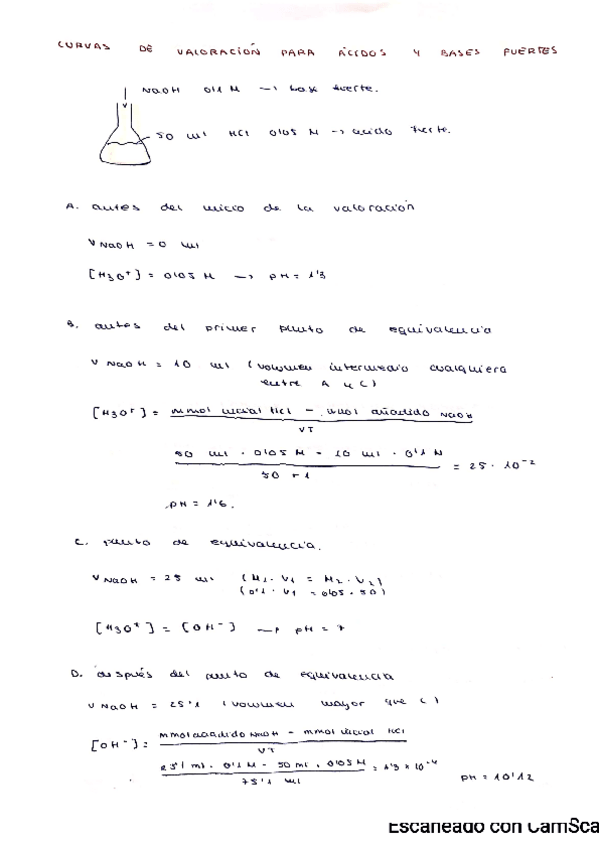 CURVAS DE VALORACIÓN PARA ÁCIDOS Y BASES FUERTES
NaOH 0'1 M → base fuerte.
50 ml HCl 0'05 M → ácido fuerte.
A. antes del inicio de la valoración
V NaOH = 0 ml
[H3O+] = 0'05 M → pH = 1'3
B. antes del primer punto de equivalencia
V NaOH = 10 ml (volumen intermedio cualquiera
entre A y C)
[H3O+] = mmol inicial HCl - mmol añadido NaOH
VT
50 ml · 0'05 M - 10 ml · 0'1 M
= 25 · 10-2
50 + 1
pH = 1'6.
C. punto de equivalencia.
V NaOH = 25 ml (M1 · V1 = M2 · V2)
(0'1 · V1 = 0'05 · 50)
[H3O+] = [OH-] → pH = 7
D. después del punto de equivalencia
V NaOH = 25'1 (volumen mayor que C)
[OH-] = mmol añadido NaOH - mmol inicial HCl
VT
25'1 ml · 0'1 M - 50 ml · 0'05 M = 1'3 × 10-4
75'1 ml
pH = 10'12
Escaneado con CamSca